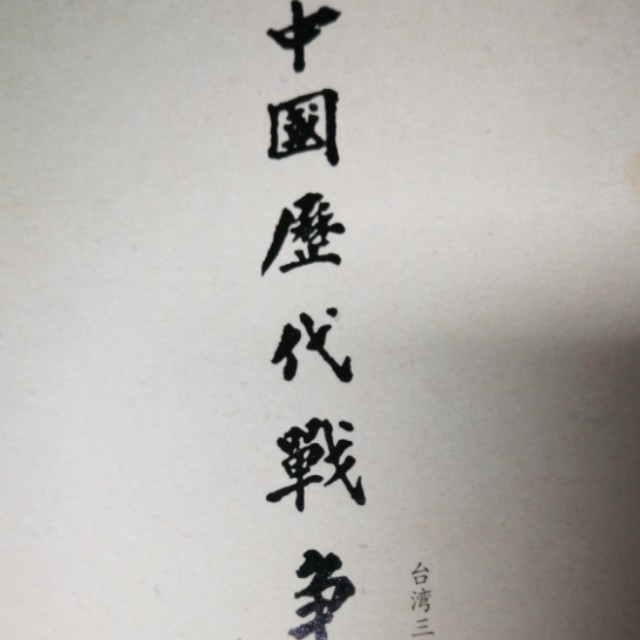 中國歷代戰爭
台湾三